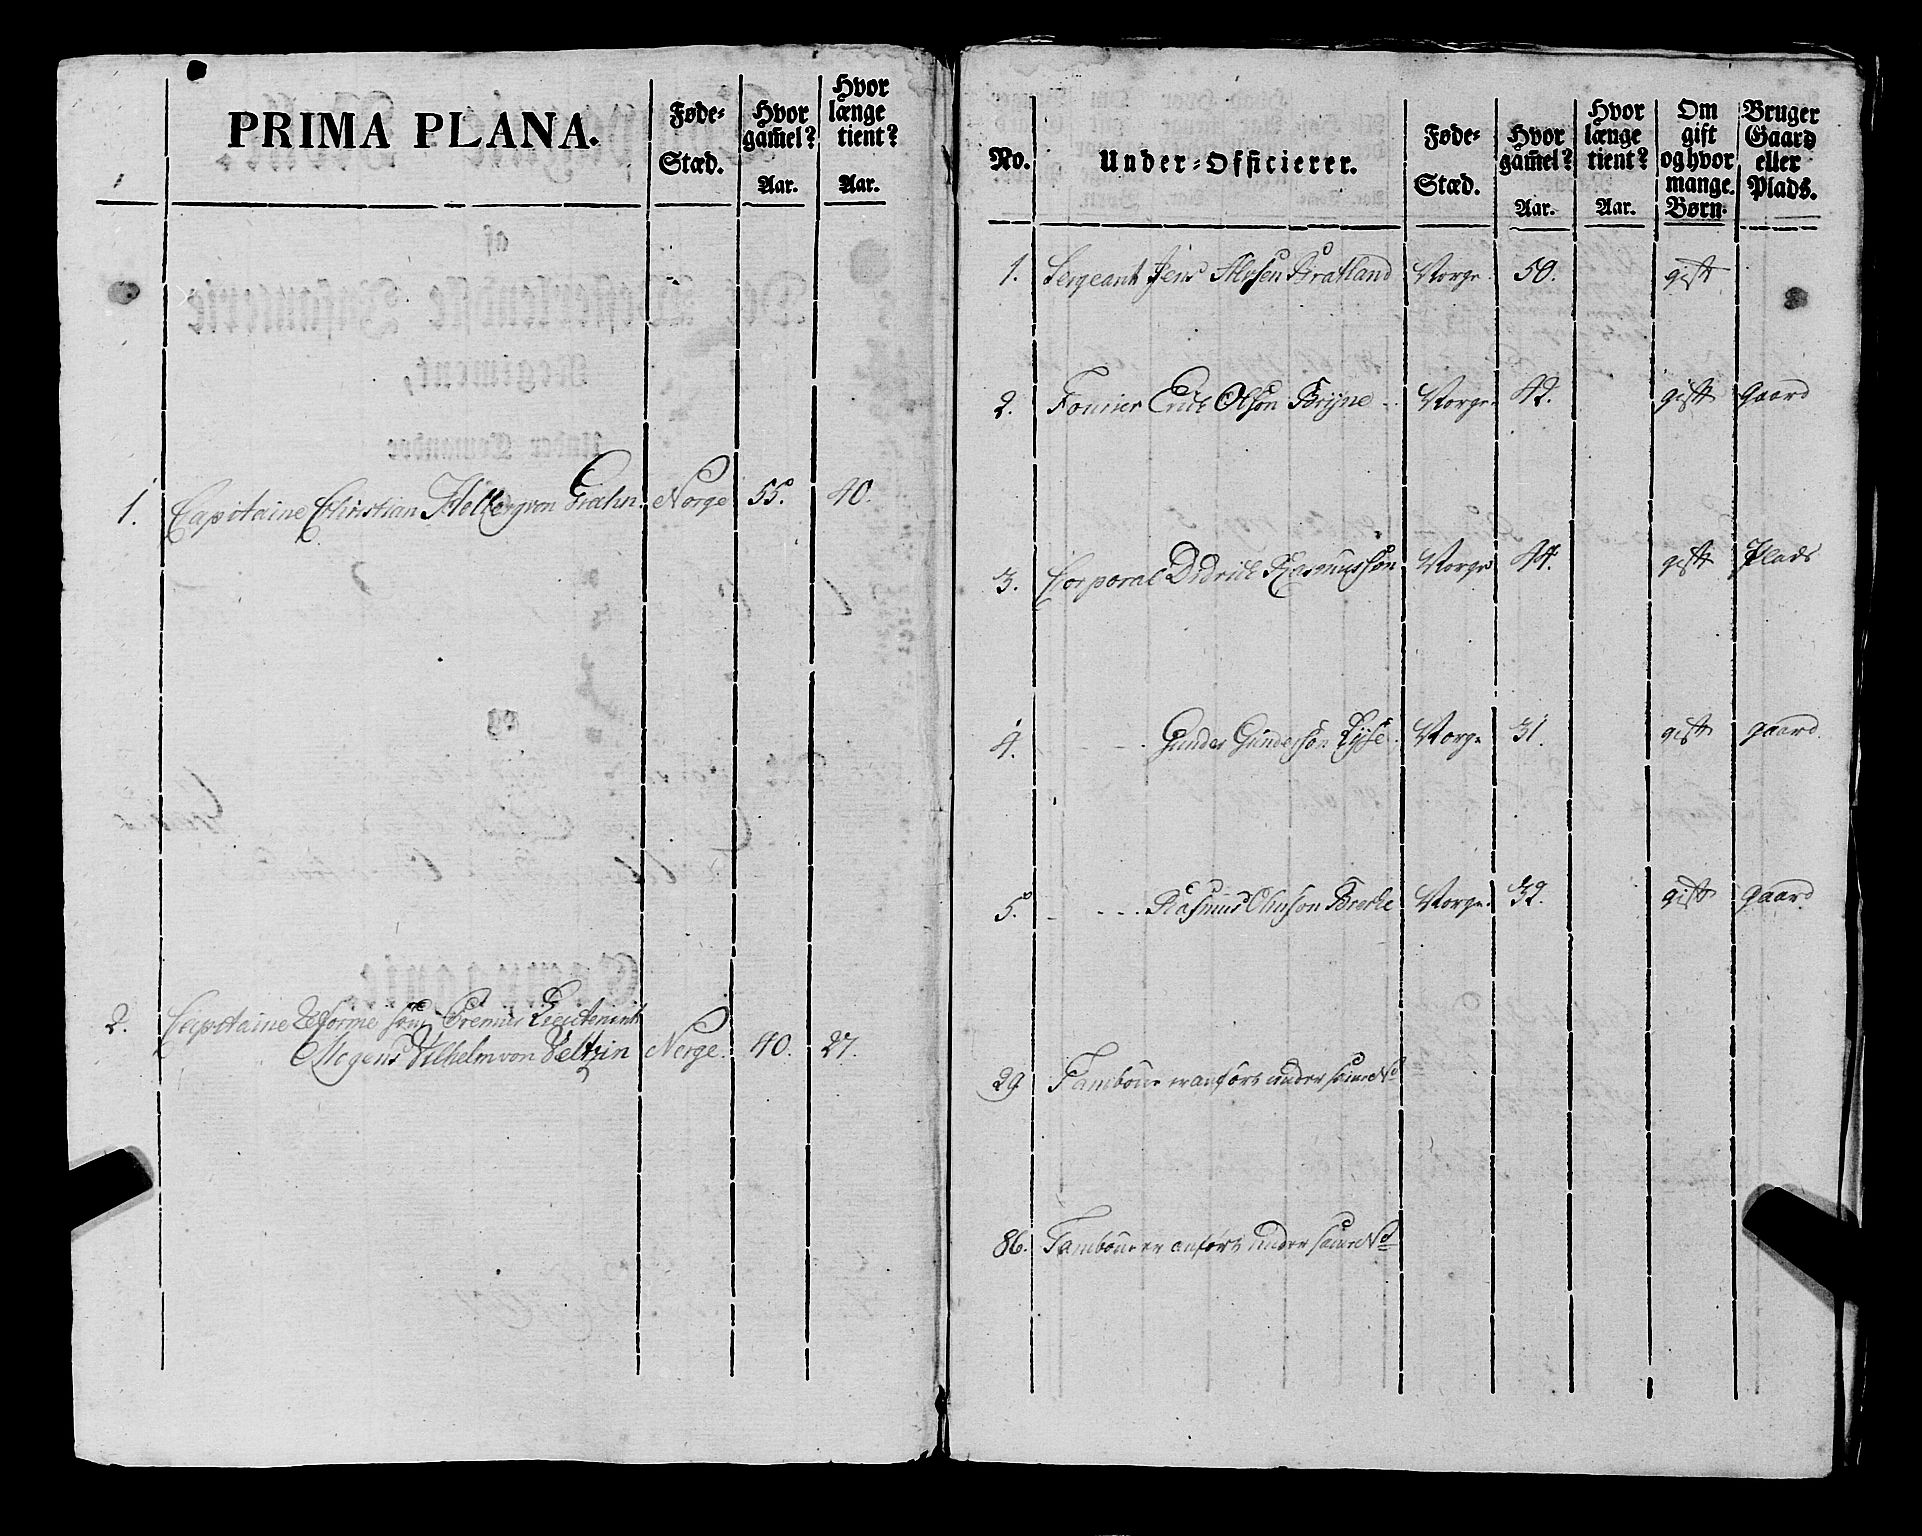 PRIMA PLANA.
Føde-
Stæd.
Hvor
gam̄el?
Aar.
Hvor
længe
tient?
Aar.
1. Capitaine Christian von Grahn. Norge 55. 40.
2. Capitaine Reforme som Premier Lieutenint
Mogens Vilhelm von Veltzin Norge. 40. 27.
No.
Under-Officierer.
Føde-
Stæd.
Hvor
gam̄el?
Aar.
Hvor
længe
tient?
Aar.
Om
gift
og hvor
mange
Børn.
Bruger
Gaard
eller
Plads.
1. Sergeant Jens Bratland Norge 50. gift
2. Fourier Erich Olsøn Bryne Norge 42. gift gaard
3. Corporal Didrich Rasmussøn Norge 44. gift Plads
4. - - Gunder Gundersøn Lyse Norge 31. gift gaard.
5. - - Rasmus Olussøn Brecke Norge. 32. gift gaard
29 Tambour er anført under samme No
86. Tambour er anført under samme No